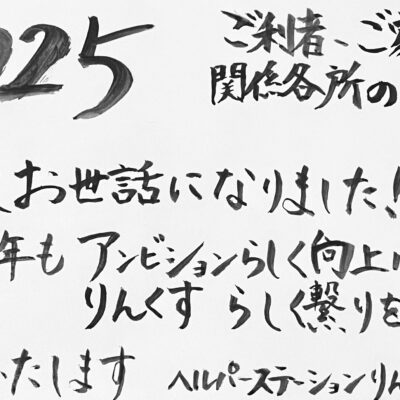 025
ご利者、ご
関係各所の
お世話になりました!
年も アンビションらしく向上
りんくす らしく繋りを
いたします
ヘルパーステーションりん